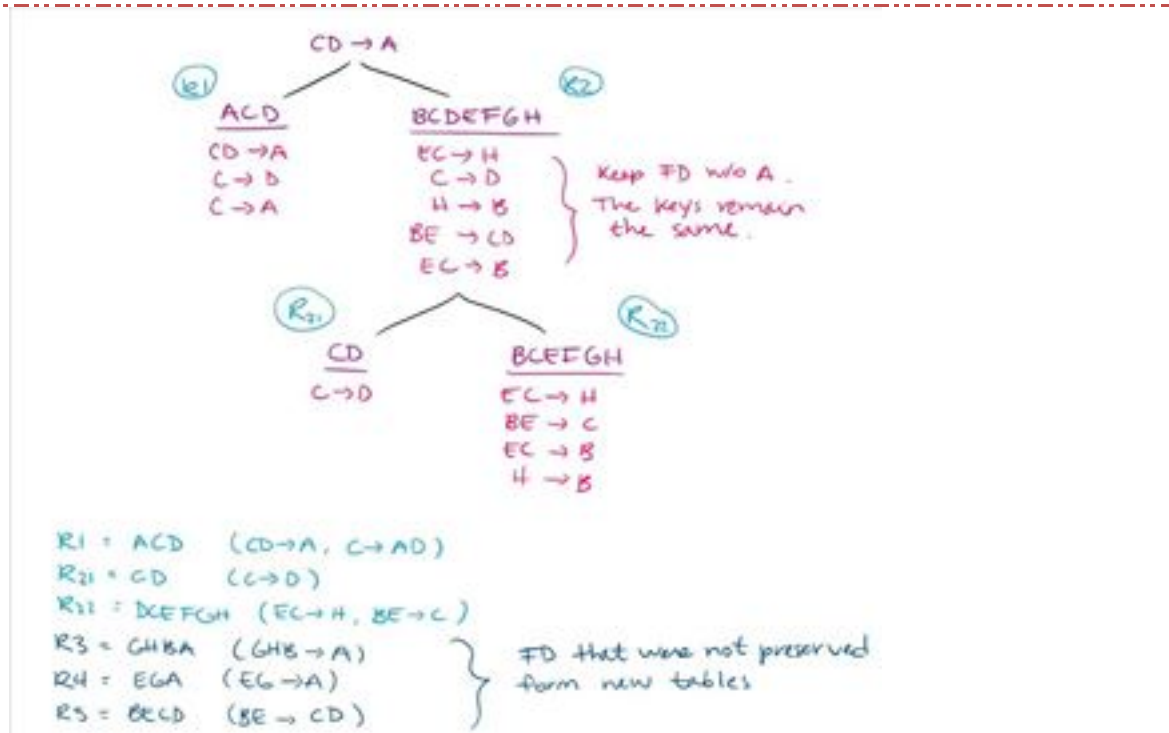 CD → A
R1
R2
ACD
BCDEFGH
CD → A
C → D
C → A
EC → H
C → D
H → B
BE → CD
EC → B
Keep FD w/o A.
The keys remain
the same.
R21
R22
CD
BCEFGH
C → D
EC → H
BE → C
EC → B
H → B
R1 = ACD (CD→A, C→AD)
R21 = CD (C→D)
R22 = BCEFGH (EC→H, BE→C)
R3 = GHBA (GHB→A)
R4 = EGA (EG→A)
R5 = BECD (BE→CD)
FD that were not preserved
form new tables